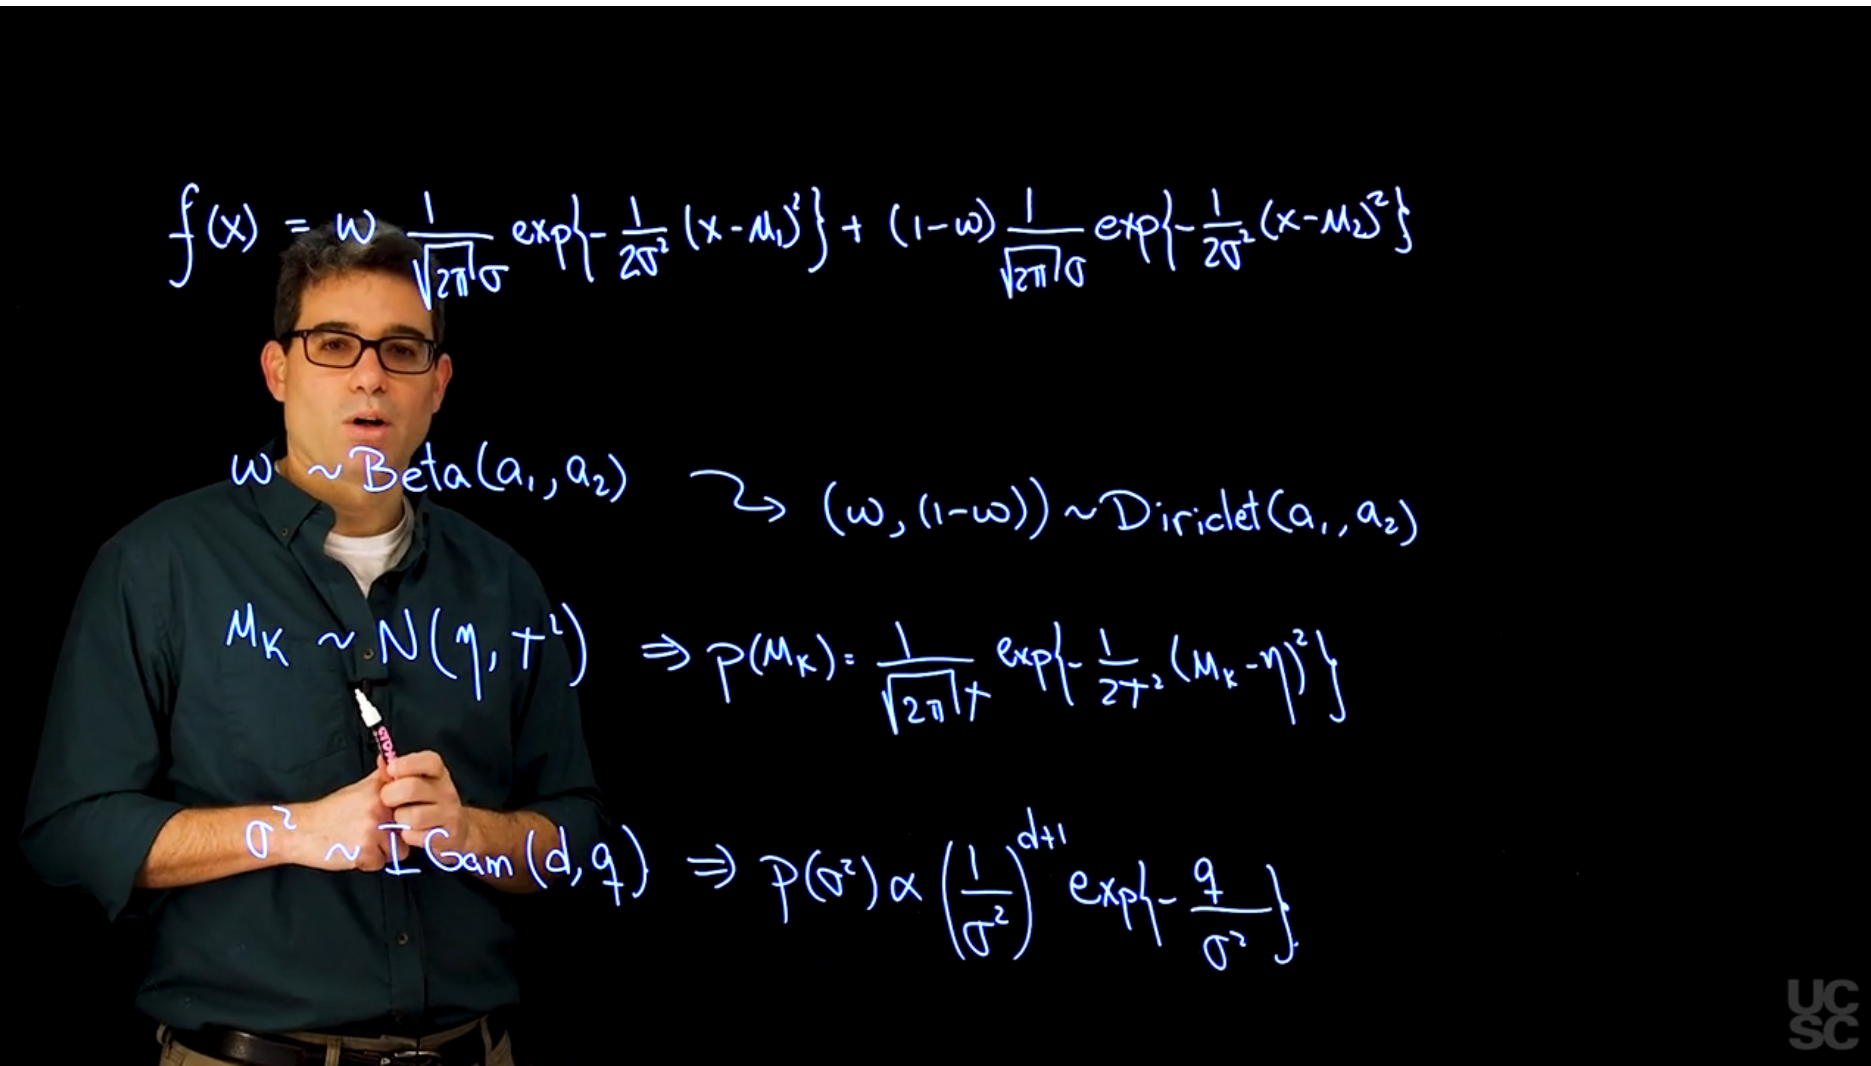 f(x) = ω 1/(√2π σ) exp{-1/(2σ²) (x-μ₁)²} + (1-ω) 1/(√2π σ) exp{-1/(2σ²) (x-μ₂)²}
ω ~ Beta(a₁, a₂) ⤳ (ω, (1-ω)) ~ Diriclet(a₁, a₂)
μₖ ~ N(η, τ²) ⇒ p(μₖ) = 1/(√2π τ) exp{-1/(2τ²) (μₖ-η)²}
σ² ~ IGam(d, q) ⇒ p(σ²) ∝ (1/σ²)^(d+1) exp{-q/σ²}.
UC
SC